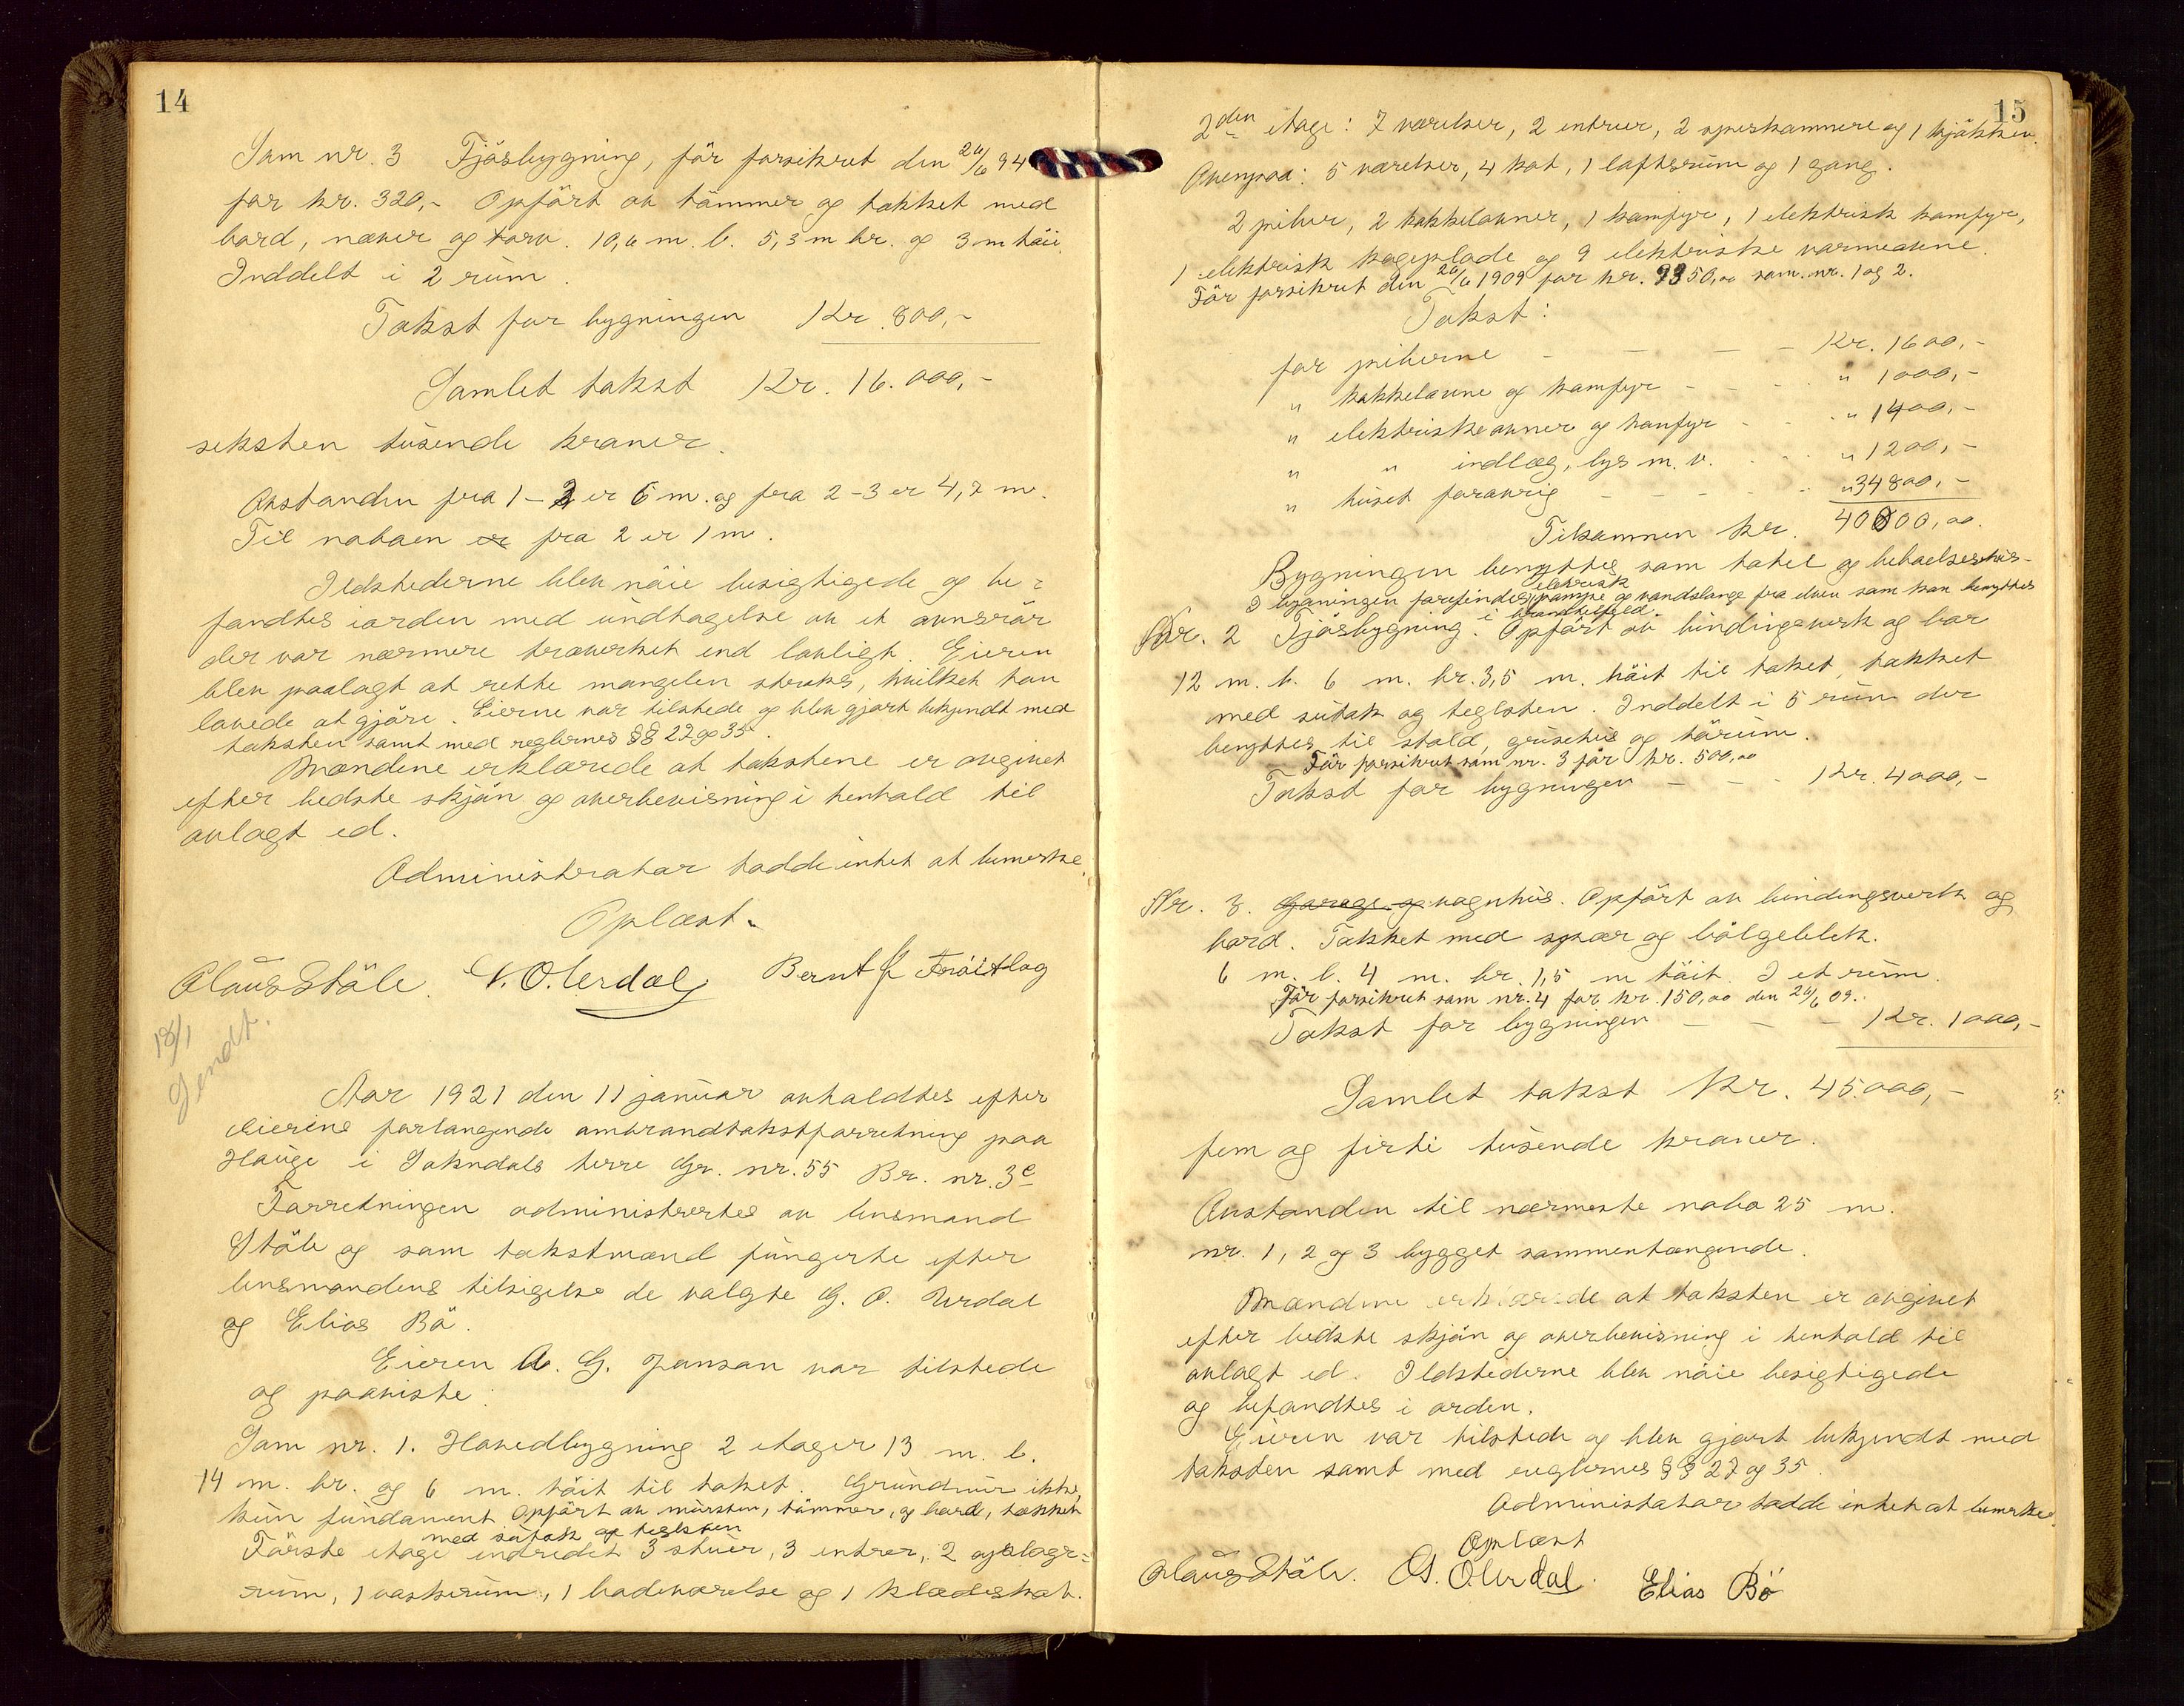 14
Som nr. 3 Fjösbygning, för forsikret den 26/6 94
for kr. 320,- Opfört av tömmer og tækket med
bord, næver og torv. 10,6 m. l. 5,3 m br. og 3 m höi.
Inddelt i 2 rum.
Takst for bygningen Kr. 800,-
Samlet takst Kr. 16.000,-
seksten tusende kroner.
Avstanden fra 1-2 er 6 m. og fra 2-3 er 4,7 m.
Til naboen er fra 2 er 1 m.
Ildstederne blev nöie besigtigede og be=
fandtes iorden med undtagelse av et ovnsrör
der var nærmere træverket end lovligt. Eieren
blev paalagt at rette mangelen straks, hvilket han
lovede at gjöre. Eierne var tilstede og blev gjort bekjendt med
taksten samt med reglernes §§ 27 og 35.
Mændene erklærede at takstene er avgivet
efter bedste skjön og overbevisning i henhold til
avlagt ed.
Administrator hadde intet at bemerke.
Oplæst.
Olaus Ståle. G. O. Urdal Bernt G Fröitlog
18/1
Sendt.
Aar 1921 den 11 januar avholdtes efter
eierens forlangende ombrandtakstforretning paa
Hauge i Sokndals herre Gr. nr. 55 Br. nr. 3e
Forretningen administrertes av lensmand
Ståle og som takstmænd fungerte efter
lensmandens tilsigelse de valgte G. O. Urdal
og Elias Bö.
Eieren A. G. Jonson var tilstede
og paaviste:
Som nr. 1. Hovedbygning 2 etager 13 m. l.
14 m. br. og 6 m. höit til taket. Grundmur ikke,
kun fundament Opfört av mursten, tömmer, og bord, tækket
med sutak og teglsten
Förste etage indredet 3 stuer, 3 entreer, 2 oplags=
rum, 1 vaskerum, 1 badeværelse og 1 klædeskot.
15
2den etage: 7 værelser, 2 entreer, 2 spiskammere og 1 kjökken.
Ovenpaa: 5 værelser, 4 kot, 1 loftsrum og 1 gang.
2 piber, 2 kakkelovner, 1 komfyr, 1 elektrisk komfyr,
1 elektrisk kogeplade og 9 elektriske varmeovne.
För forsikret den 26/6 1909 for kr. 9350,00 som nr. 1 og 2.
Takst:
for piberne - - - - Kr. 1600,-
" kakkelovne og komfyr - - - " 1000,-
" elektriske ovner og komfyr - - " 1400,-
" " indlæg, lys m. v. - - " 1200,-
" huset forövrig - - - - " 34800,-
Tilsammen Kr. 40000,00.
Bygningen benyttes som hotel og beboelseshus.
elektrisk
I bygningen forefindes pumpe og vandslange fra elven som kan benyttes
i brandtilfeld.
Nr. 2 Fjösbygning. Opfört av bindingsverk og bor
12 m. l. 6 m. br. 3,5 m. höit til taket, tækket
med sutak og teglsten. Inddelt i 5 rum der
benyttes til stald, grisehus og hörum.
För forsikret som nr. 3 för kr. 500,00
Takst for bygningen - - - Kr. 4000,-
Nr. 3. Garage og vognhus. Opfört av bindingsverk og
bord. Tækket med spær og bölgeblek.
6 m. l. 4 m. br. 1,5 m höit. I et rum.
För forsikret som nr. 4 for kr. 150,00 den 26/6 09.
Takst for bygningen - - - Kr. 1000,-
Samlet takst Kr. 45.000,-
fem og firti tusende kroner.
Avstanden til nærmeste nabo 25 m.
nr. 1, 2 og 3 bygget sammenhængende.
Mændene erklærede at taksten er avgivet
efter bedste skjön og overbevisning i henhold til
avlagt ed. Ildstederne blev nöie besigtigede
og befandtes i orden.
Eieren var tilstede og blev gjort bekjendt med
taksten samt med reglernes §§ 27 og 35.
Administator hadde intet at bemerke.
Oplæst
Olaus Ståle. G. O. Urdal. Elias Bö